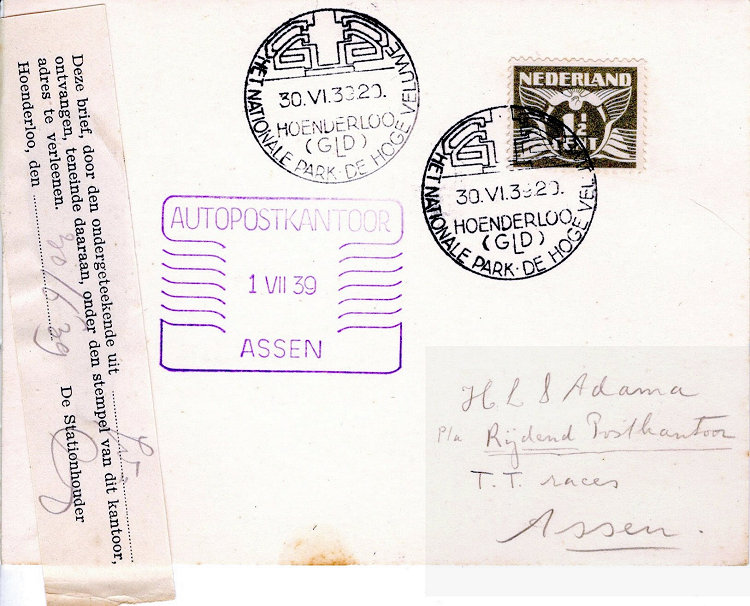 Deze brief, door den ondergeteekende uit
ontvangen, teneinde daaraan, onder den stempel van dit kantoor,
adres te verleenen.
Hoenderloo, den 30/6 39 De Stationhouder
HET NATIONALE PARK · DE HOGE VELUWE
30.VI.39.20.
HOENDERLOO
(GLD)
NEDERLAND
1½
CENT
HET NATIONALE PARK · DE HOGE VEL
30.VI.39.20.
HOENDERLOO
(GLD)
AUTOPOSTKANTOOR
1 VII 39
ASSEN
H L S Adama
p/a Rijdend Postkantoor
T.T. races
Assen.